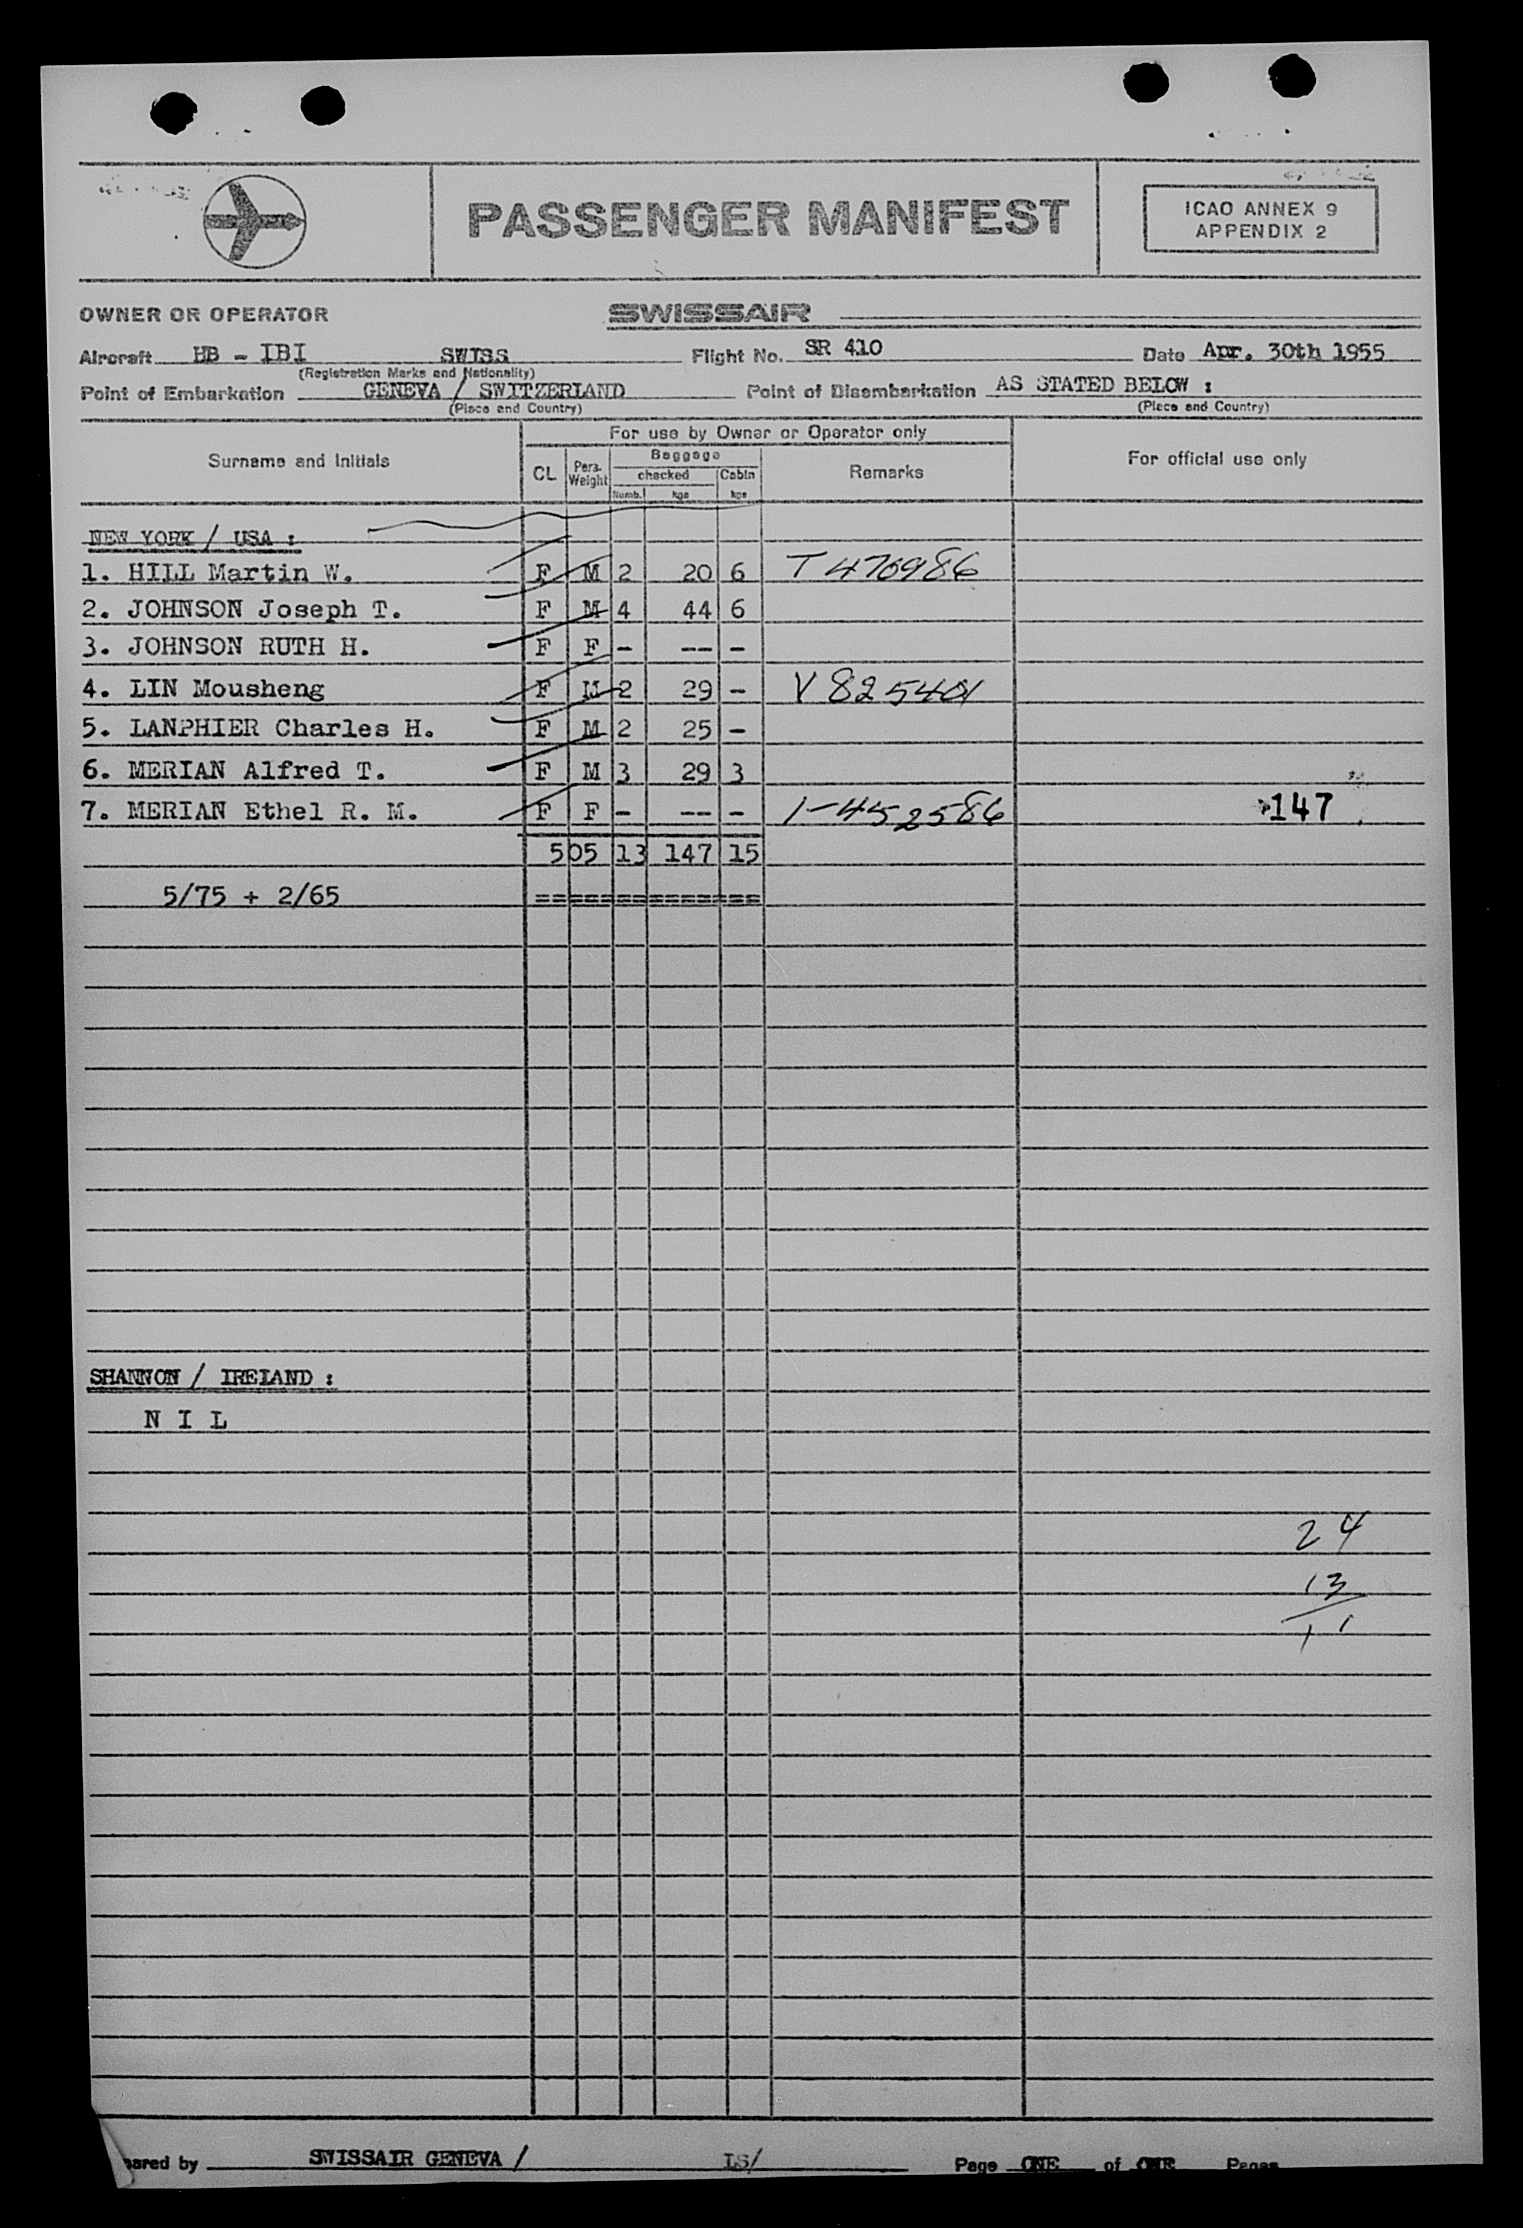 PASSENGER MANIFEST
ICAO ANNEX 9
APPENDIX 2
OWNER OR OPERATOR SWISSAIR
Aircraft HB - IBI SWISS Flight No. SR 410 Date Apr. 30th 1955
(Registration Marks and Nationality)
Point of Embarkation GENEVA / SWITZERLAND Point of Disembarkation AS STATED BELOW :
(Place and Country) (Place and Country)
For use by Owner or Operator only
Surname and Initials CL Pers. Weight Baggage Remarks For official use only
checked Cabin
Numb. kgs kgs
NEW YORK / USA :
1. HILL Martin W. F M 2 20 6 T 476986
2. JOHNSON Joseph T. F M 4 44 6
3. JOHNSON RUTH H. F F - --- -
4. LIN Mousheng F M 2 29 - V 825401
5. LANPHIER Charles H. F M 2 25 -
6. MERIAN Alfred T. F M 3 29 3
7. MERIAN Ethel R. M. F F - --- - 1-452586 147
505 13 147 15
5/75 + 2/65 ==============
SHANNON / IRELAND :
N I L
24
13
11
pared by SWISSAIR GENEVA / LS/ Page ONE of ONE Pages